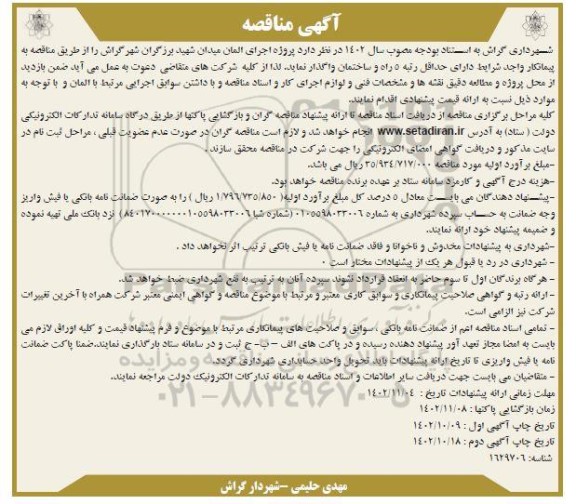 آگهی مناقصه
شهرداری گراش به استناد بودجه مصوب سال ۱۴۰۲ در نظر دارد پروژه اجرای المان میدان شهید برزگران شهر گراش را از طریق مناقصه به
پیمانکار واجد شرایط دارای حداقل رتبه ۵ راه و ساختمان واگذار نماید. لذا از کلیه شرکت های متقاضی دعوت به عمل می آید ضمن بازدید
از محل پروژه و مطالعه دقیق نقشه ها و مشخصات فنی و لوازم اجرای کار و اسناد مناقصه و با داشتن سوابق اجرایی مرتبط با المان و با توجه به
موارد ذیل نسبت به ارائه قیمت پیشنهادی اقدام نمایند.
کلیه مراحل برگزاری مناقصه از دریافت اسناد مناقصه تا ارائه پیشنهاد مناقصه گران و بازگشایی پاکتها از طریق درگاه سامانه تدارکات الکترونیکی
دولت ( ستاد) به آدرس www.setadiran.ir انجام خواهد شد و لازم است مناقصه گران در صورت عدم عضویت قبلی ، مراحل ثبت نام در
سایت مذکور و دریافت گواهی امضای الکترونیکی را جهت شرکت در مناقصه محقق سازند .
-مبلغ برآورد اولیه مورد مناقصه ۳۵/۹۳۴/۷۱۷/۰۰۰ ریال می باشد.
-هزینه درج آگهی و کارمزد سامانه ستاد بر عهده برنده مناقصه خواهد بود.
-پیشنهاد دهندگان می بایست معادل ۵ درصد کل مبلغ برآورد اولیه( ۱/۷۹۶/۷۳۵/۸۵۰ ریال ) را به صورت ضمانت نامه بانکی یا فیش واریز
وجه ضمانت به حساب سپرده شهرداری به شماره ۰۱۰۵۵۹۸۰۳۳۰۰۶ (شماره شبا ) نزد بانک ملی تهیه نموده
و ضمیمه پیشنهاد خود ارائه نمایند.
-شهرداری به پیشنهادات مخدوش و ناخوانا و فاقد ضمانت نامه یا فیش بانکی ترتیب اثر نخواهد داد .
- شهرداری در رد یا قبول هر یک از پیشنهادات مختار است ۰
- هرگاه برندگان اول تا سوم حاضر به انعقاد قرارداد نشوند سپرده آنان به ترتیب به نفع شهرداری ضبط خواهد شد.
- ارائه رتبه و گواهی صلاحیت پیمانکاری و سوابق کاری معتبر و مرتبط با موضوع مناقصه و گواهی ایمنی معتبر شرکت همراه با آخرین تغییرات
شرکت نیز الزامی است.
- تمامی اسناد مناقصه اعم از ضمانت نامه بانکی ، سوابق و صلاحیت های پیمانکاری مرتبط با موضوع و فرم پیشنهاد قیمت و کلیه اوراق لازم می
بایست به امضا مجاز تعهد آور پیشنهاد دهنده رسیده و در پاکت های الف – ب- ج ثبت و در سامانه ستاد بارگذاری نمایند.ضمنا پاکت ضمانت
نامه یا فیش واریزی تا تاریخ ارائه پیشنهادات باید تحویل واحد حسابداری شهرداری گردد.
- متقاضیان می بایست جهت دریافت سایر اطلاعات و اسناد مناقصه به سامانه تدارکات الکترونیک دولت مراجعه نمایند.
مهلت زمانی ارائه پیشنهادات تاریخ : ۱۴۰۲/۱۱/۰۴
زمان بازگشایی پاکتها : ۱۴۰۲/۱۱/۰۸
تاریخ چاپ آگهی اول : ۱۴۰۲/۱۰/۰۹
تاریخ چاپ آگهی دوم : ۱۴۰۲/۱۰/۱۸
شناسه: ۱۶۲۹۷۰۶
مهدی حلیمی –شهردار گراش
۰۲۱-۸۸۳۴۹۶۷۰-۵